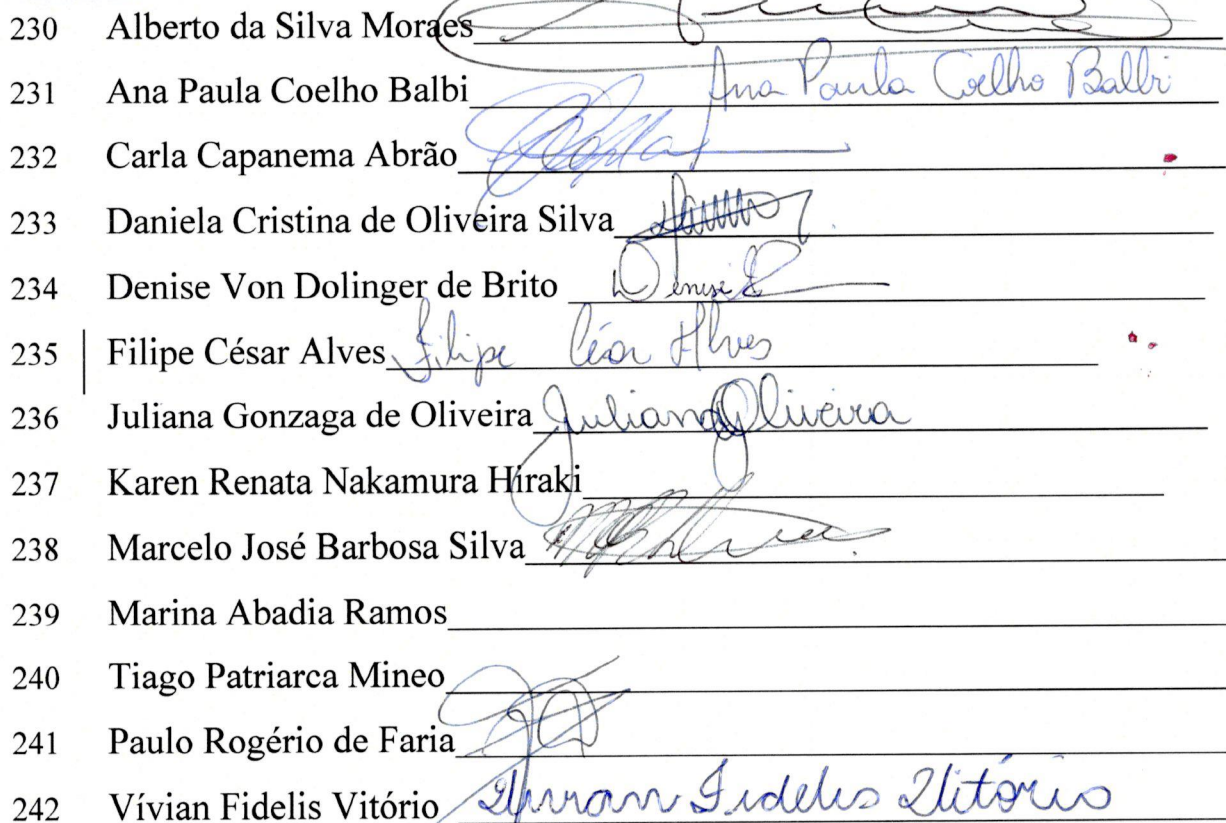 230 Alberto da Silva Moraes
231 Ana Paula Coelho Balbi Ana Paula Coelho Balbi
232 Carla Capanema Abrão
233 Daniela Cristina de Oliveira Silva
234 Denise Von Dolinger de Brito Denise
235 Filipe César Alves Filipe César Alves
236 Juliana Gonzaga de Oliveira Juliana Oliveira
237 Karen Renata Nakamura Hiraki
238 Marcelo José Barbosa Silva
239 Marina Abadia Ramos
240 Tiago Patriarca Mineo
241 Paulo Rogério de Faria
242 Vívian Fidelis Vitório Vívian Fidelis Vitório